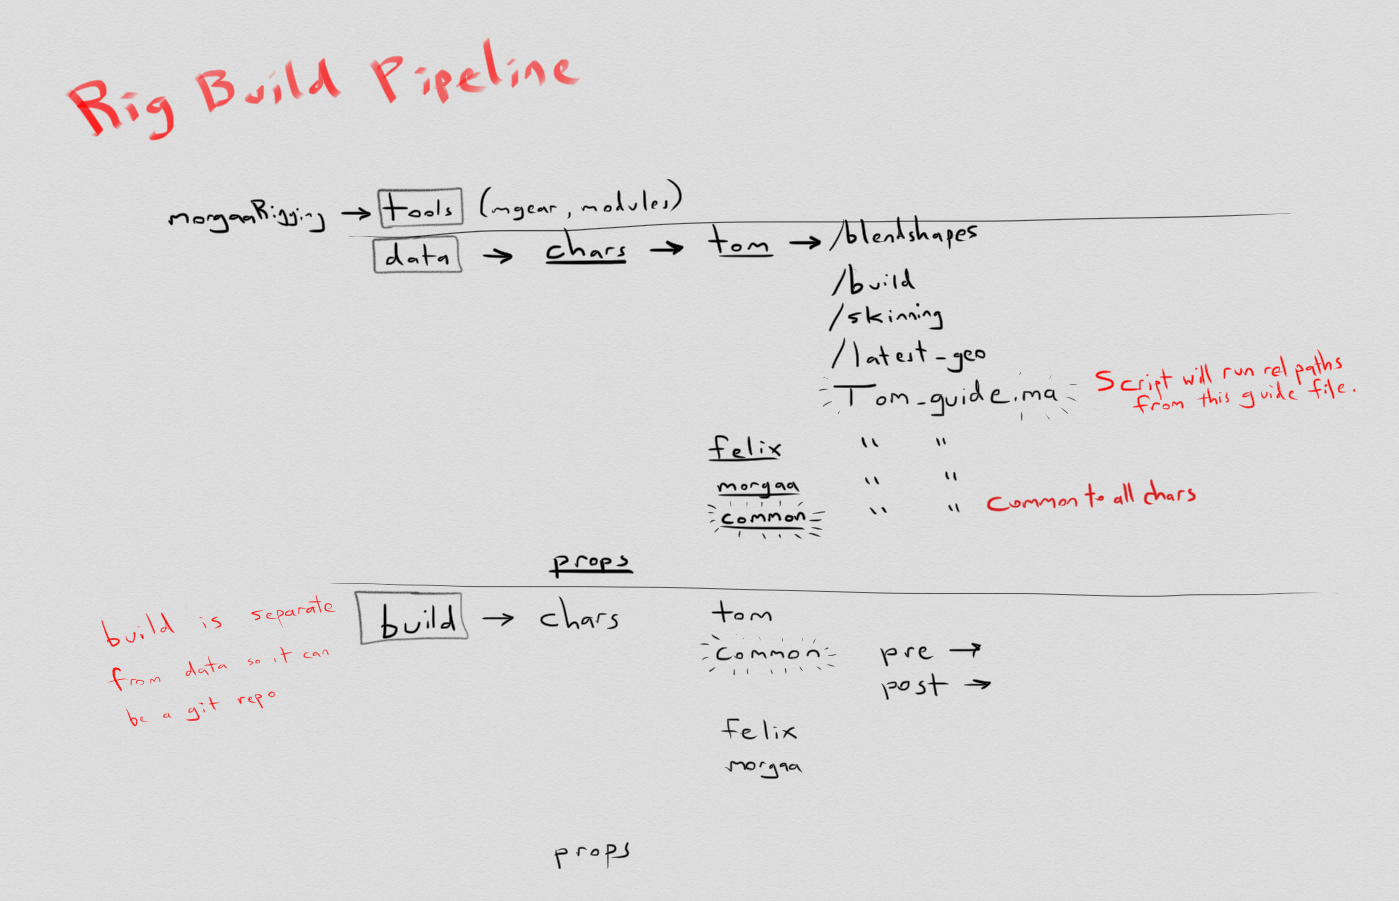 Rig Build Pipeline
morgaaRigging → tools (mgear, modules)
data → chars → tom → /blendshapes
/build
/skinning
/latest-geo
Tom-guide.ma
Script will run rel paths
from this guide file.
felix " "
morgaa " "
common " " Common to all chars
props
build → chars tom
common pre →
post →
felix
morgaa
props
build is separate
from data so it can
be a git repo